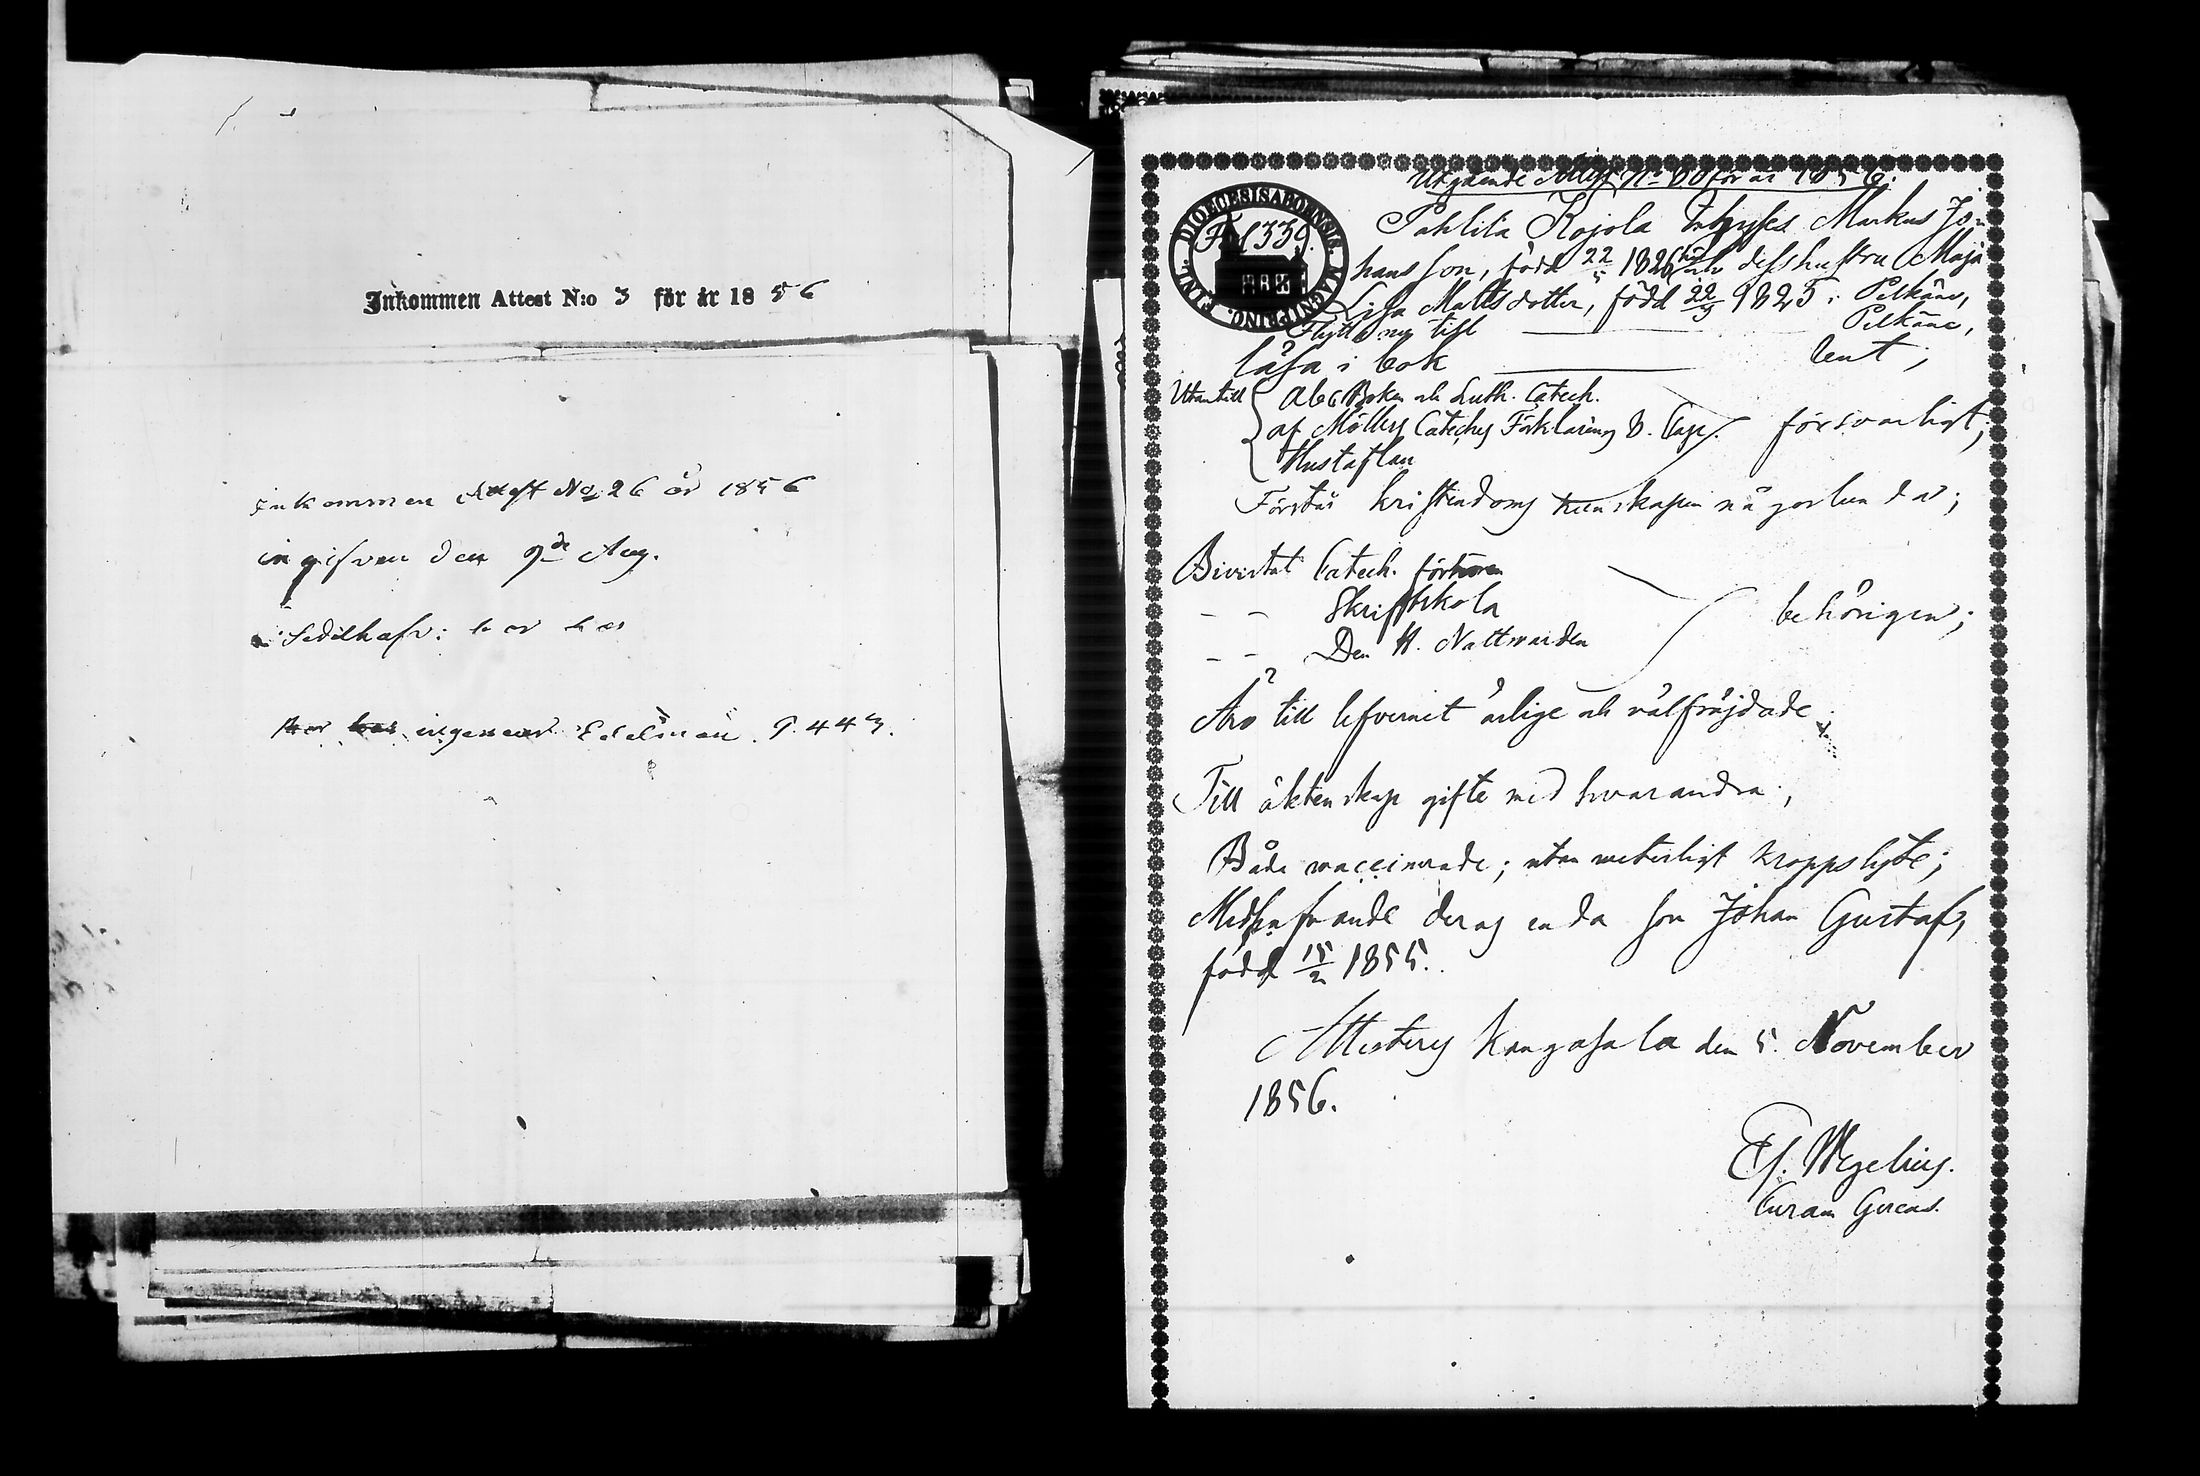 Inkommen Attest N:o 3 för år 1856
Inkommen Attest No 26 år 1856
ingifven den 9de Aug.
Sedelhafv: bor hos
Bor hos ingeneur Edelman P. 443.
Utgående Attest No 60 för år 1856.
DIOECESIS ABOENSIS. MAGNI PRINC. FINL.
Fol 330.
Pahlila Kojola Inhyses Markus Jo-
hansson, född 22/5 1826 och dess hustru Maja
Lisa Mattsdotter, född 22/9 1825 i Pelkäne,
Flytta nu till Pelkäne,
läsa i bok rent,
Utantill Abc Boken och Luth. Catech.
af Möllers Cateches Förklaring 8. Cap. försvarligt;
Hustaflan
Förstår kristendoms kunskapen någorlunda;
Bivistat Catech. förhören
- - Skriftskola behörigen;
- - Den H. Nattvarden
Äro till lefvernet ärlige och välfräjdade
Till äktenskap gifte med hvarandra;
Båda vaccinerade; utan veterligt kroppslyte;
Medhafvande deras enda son Johan Gustaf,
född 15/2 1855.
Attesteras Kangasala den 5. November
1856.
Ef. Wegelius.
Curam Gerens.